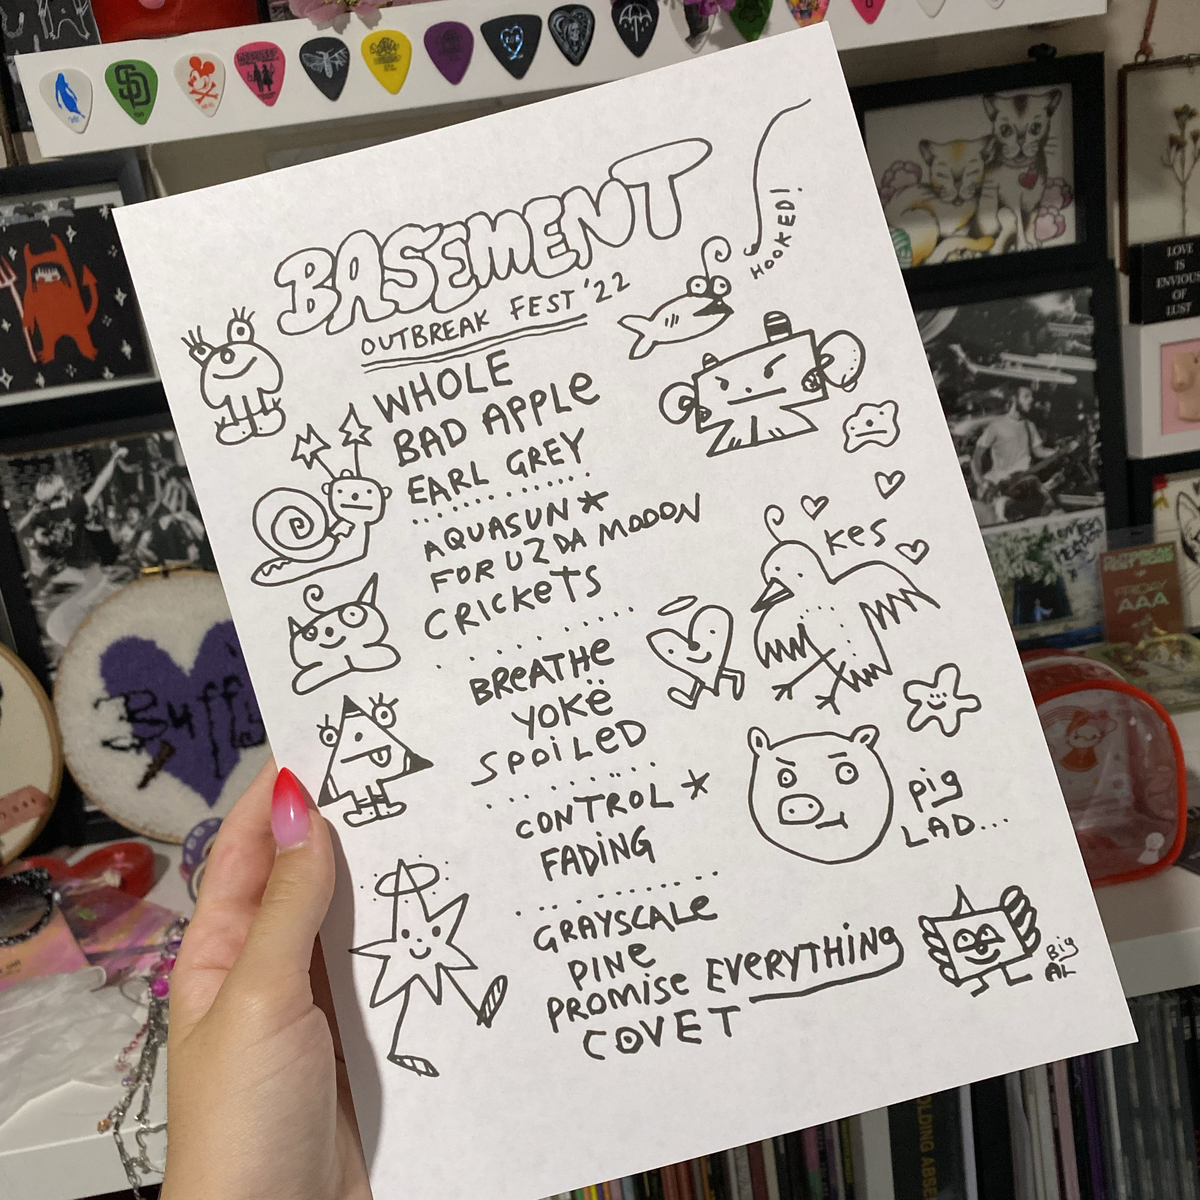 BASEMENT
OUTBREAK FEST '22
HOOKED!
WHOLE
BAD APPLE
EARL GREY
AQUASUN *
FOR U 2 DA MOOON
CRICKETS
KES
BREATHE
YOKË
SPOILED
CONTROL *
FADING
PIG
LAD...
GRAYSCALE
PINE
PROMISE EVERYTHING
COVET
BIG
AL
LOVE
IS
ENVIOUS
OF
LUST
FRIDAY
AAA
Buffy
SD